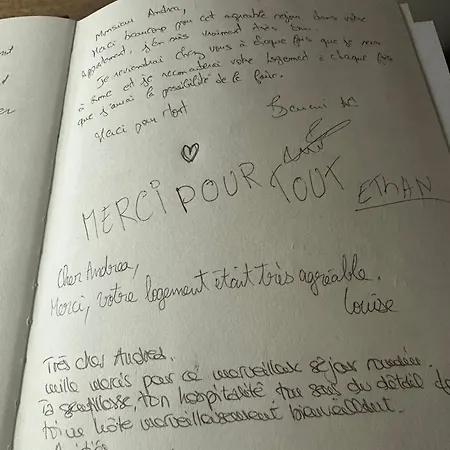 Monsieur Andrea,
Merci beaucoup pour cet agréable séjour dans votre
appartement, j'en suis vraiment très
Je reviendrai chez vous à chaque fois que je
à Rome et je recommanderai votre logement à chaque fois
que j'aurai la possibilité de le faire.
Merci pour tout
MERCI POUR TOUT
ETHAN
Cher Andrea,
Merci, votre logement était très agréable.
Louise
Très cher Andrea.
mille mercis pour ce merveilleux séjour
Ta gentillesse, ton hospitalité ton sens du détail
toi un hôte merveilleusement bienveillant.